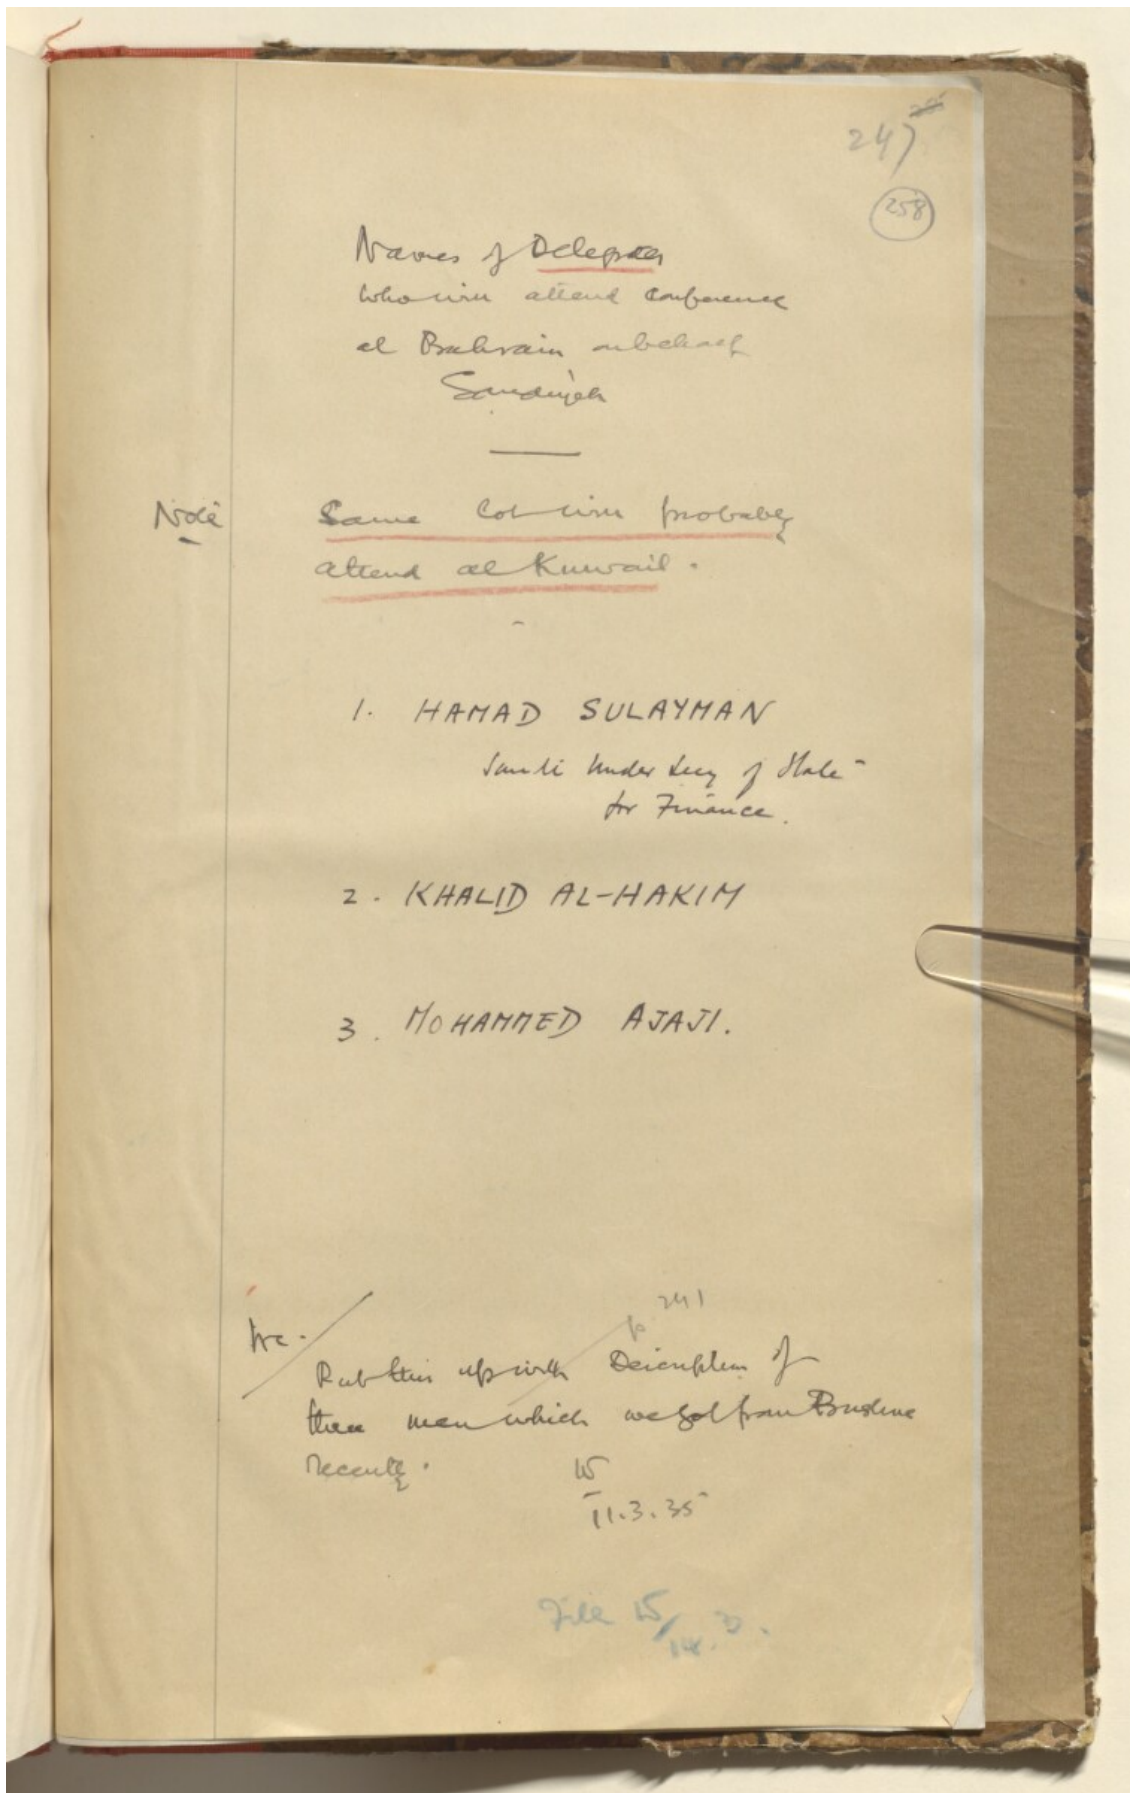 247
258
Names of Delegates
who will attend Conference
at Bahrain on behalf
Saudiyeh
Note
Same lot will probably
attend at Kuwait.
1. HAMAD SULAYMAN
Saudi Under Secy of State
for Finance.
2. KHALID AL-HAKIM
3. MOHAMMED AJAJI.
p 241
Put this up with Description of
these men which we got from Bushire
recently.
11.3.35
File
14.3.